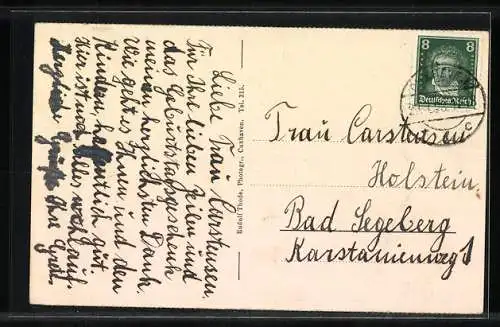 Liebe Frau Carstensen.
Für Ihr lieben Zeilen und
das Geburtstagsgeschenk
meinen herzlichsten Dank.
Wie geht es Ihnen und den
Kindern, hoffentlich gut
Hier ist noch alles wohlauf.
Herzliche Grüße Ihre
Rudolf Thode, Photogr., Cuxhaven. Tel. 315.
8 8
Deutsches Reich
Frau Carstensen
Holstein.
Bad Segeberg
Karstanienweg 1